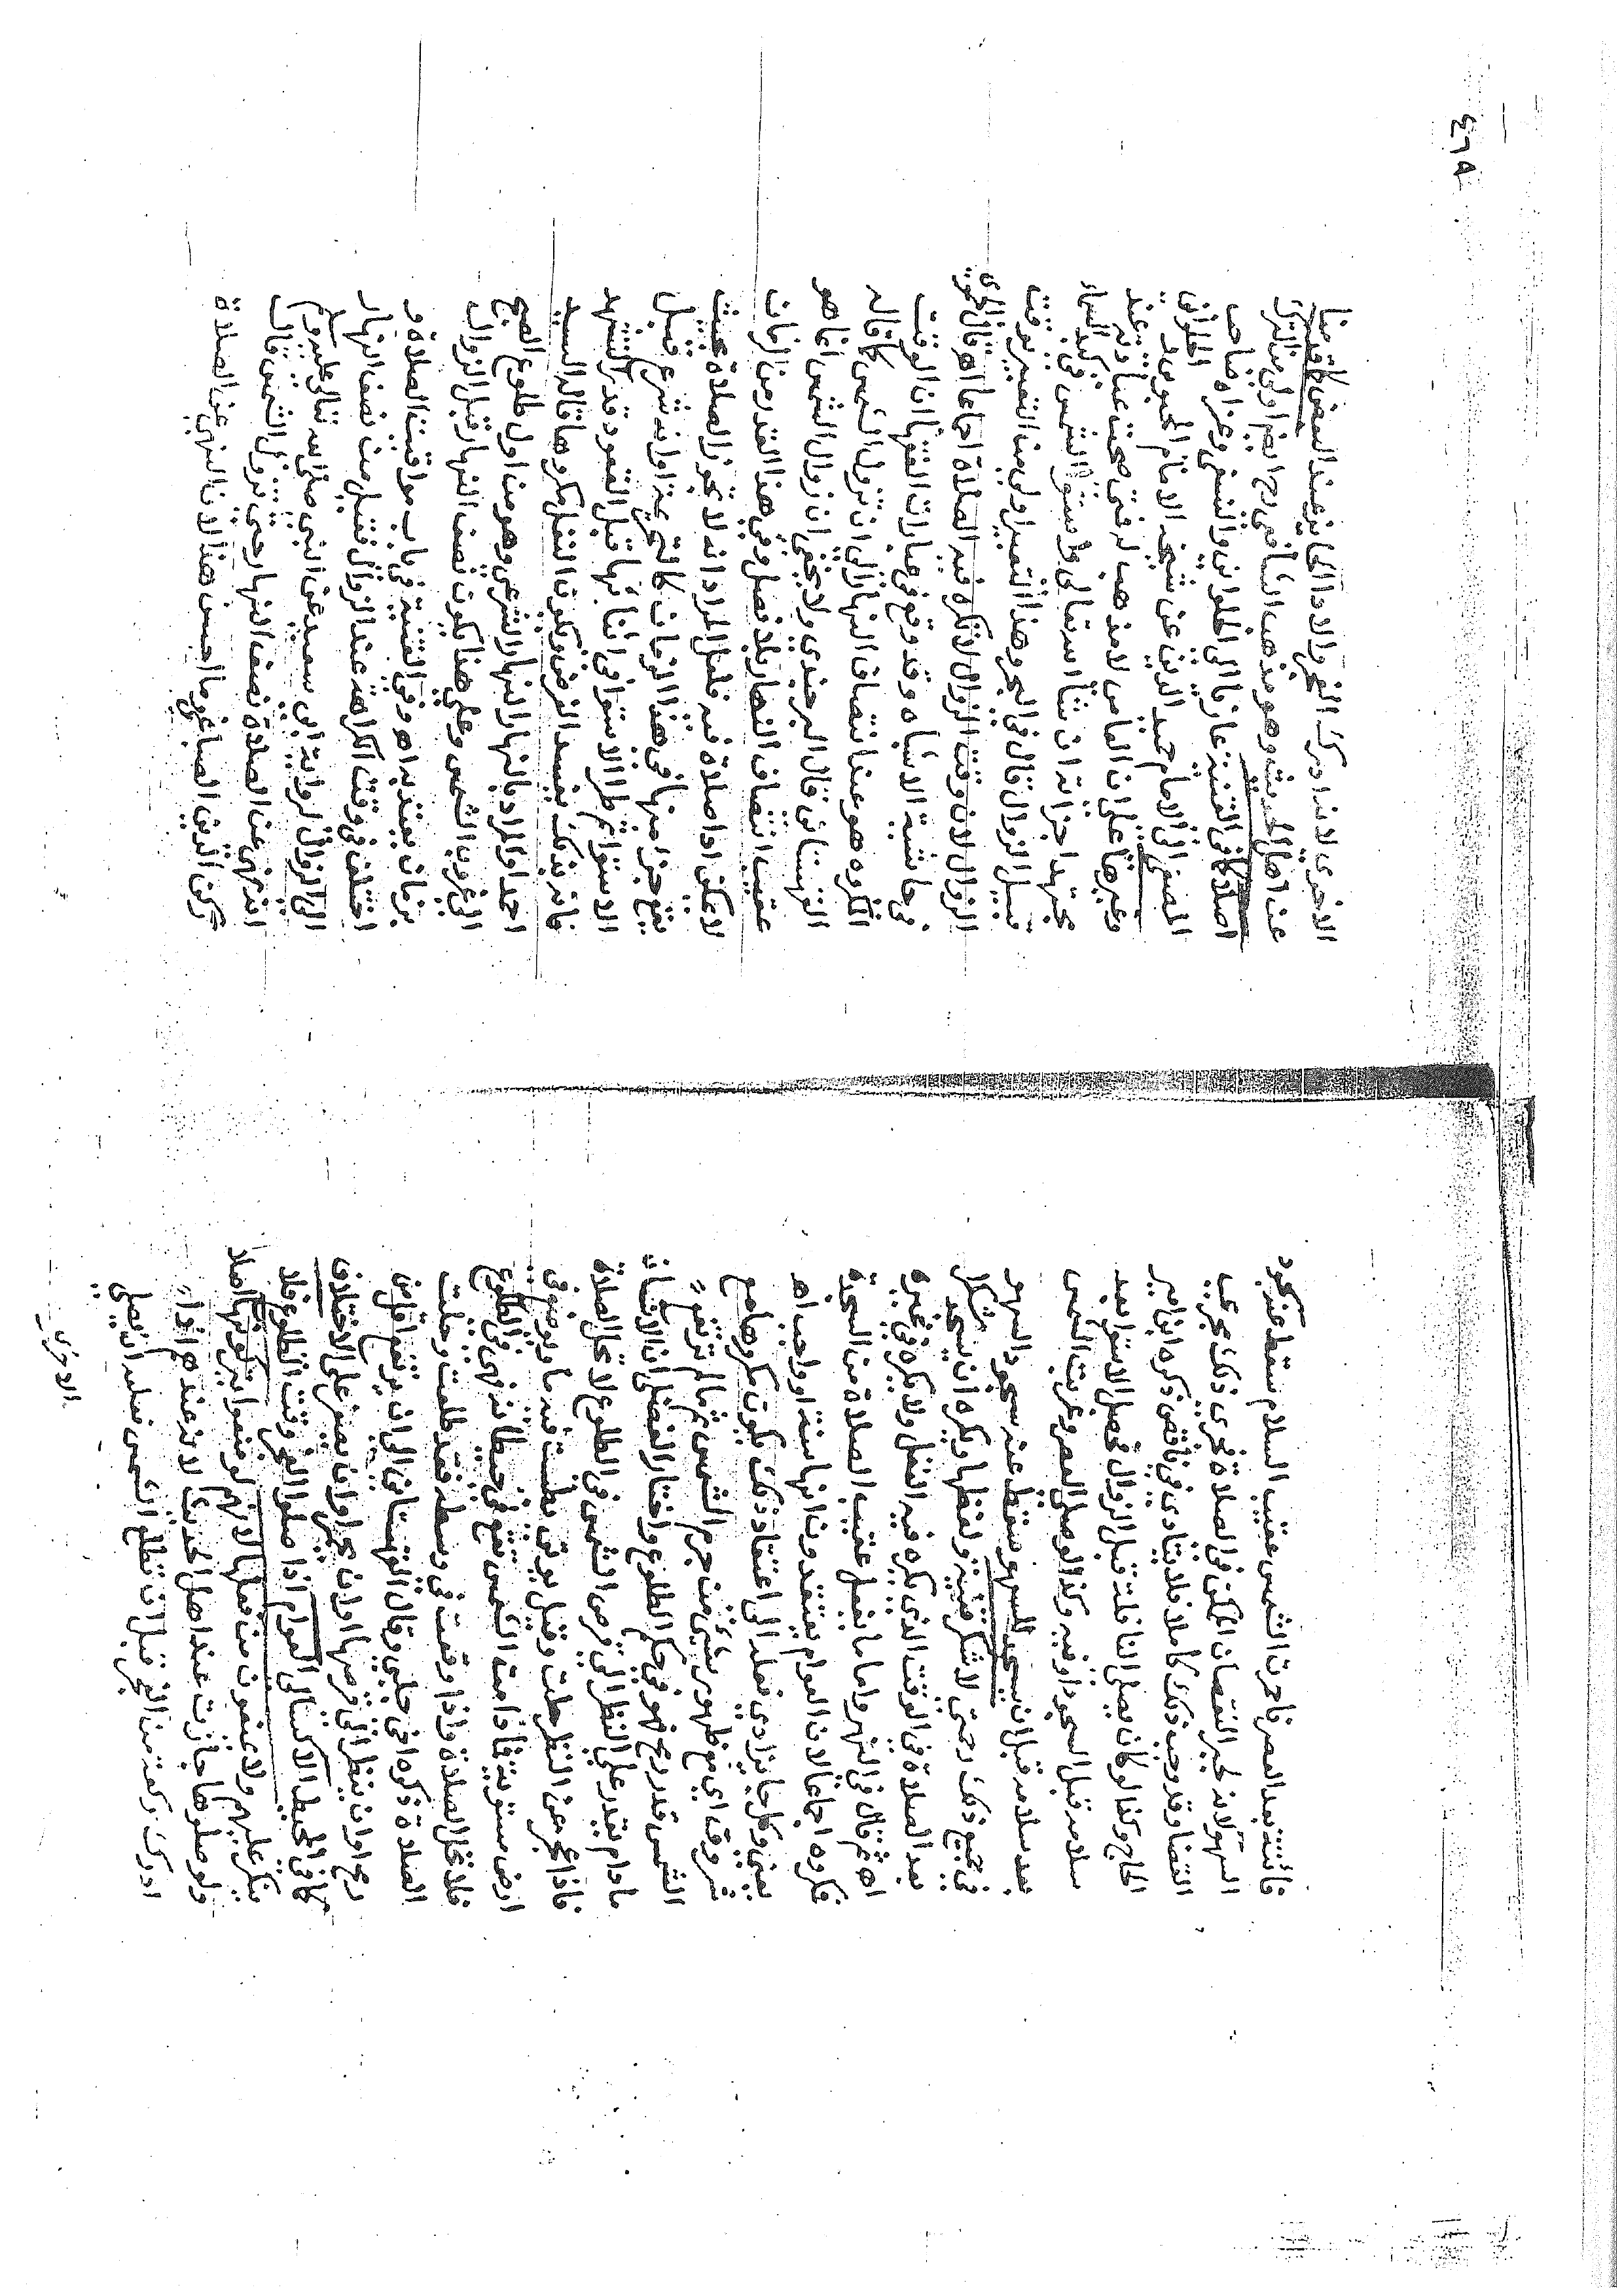 فائتته بعد العصر فاحمرت الشمس عقيب السلام سقط عنه سجود
السهو لانه لجبر النقصان المتمكن في الصلاة فجرى ذلك مجرى
القضا وقد وجب ذلك كاملا فلا يتادى في ناقص ذكره ابن امير
الحاج وكذا لو كان يصلي النافلة قبل الزوال فحصل الاستوا بعد
سلامه قبل السجود او فيه وكذا لو صلى العصر وغربت الشمس
بعد سلامه قبل ان يسجد للسهو سقط عنه سجود السهو
في جميع ذلك رحمتي لا شكر قنية ولفظها ويكره ان يسجد شكرا
بعد الصلاة في الوقت الذي يكره فيه النفل ولا يكره في غيره
اه ثم قال في النهر واما ما يفعل عقيب الصلاة من السجدة
فمكروه اجماعا لان العوام يعتقدون انها سنة او واجبة اه
يعني وكل جايز ادى فعله الى اعتقاد ذلك يكون مكروها مع
شروق اي مع ظهور شئ من جرم الشمس ثم ما لم ترتفع
الشمس قدر رمح فهو في حكم الطلوع واختار الفضلي ان الانسان
ما دام يقدر على النظر الى قرص الشمس في الطلوع لا تحل الصلاة
فاذا عجز عن النظر حلت وقيل يوتى بطست فيه ما ويوضع في
ارض مستوية فاذا دامت الشمس تقع في حيطانه فهي في الطلوع
فلا تحل الصلاة واذا وقعت في وسطه فقد طلعت وحلت
الصلاة ذكره في حلبي وقال القهستاني الى ان يرتفع اقل من
رمح او ان ينظر الى قرصها او ان تحمر او ان تصفر على الاختلاف
كما في المحيط الا كسالى العوام اذا صلوا الفجر وقت الطلوع فلا
ينكر عليهم ولا يمنعون من فعلها لانهم لو منعوا يتركونها اصلا
ولو صلوها جازت عند اهل الحديث لانه عندهم اداء
ادرك ركعة من الفجر قبل ان تطلع الشمس فعليه ان يصلي
الاخرى
٤٦٩
الاخرى لانه ادرك الفجر والاداء الجايز عند البعض كما قدمنا
عن اهل الحديث وهو مذهب الشافعي رح ايضا اولى من الترك
اصلا كما في القنية عازيا الى الحلواني والنسفي وعزاه صاحب
المصفى الى الامام حميد الدين عن شيخه الامام المحبوبي الحلواني
وغيرها على ان العامي لا مذهب له فمتى صحت عبادته عند
مجتهد اجزاته ان شا الله تعالى واستوا الشمس في كبد السماء
قبيل الزوال قال في البحر وهذا التعبير اولى من التعبير بوقت
الزوال لان وقت الزوال لا تكره فيه الصلاة اجماعا اه قال الحموي
في حاشية الاشباه وقد وقع في عبارات الفقها ان الوقت
المكروه هو عند انتصاف النهار الى ان تزول الشمس كما قاله
القهستاني قال البرجندي ولا يخفى ان زوال الشمس انما هو
عقيب انتصاف النهار بلا فصل وفي هذا القدر من الزمان
لا يمكن ادا صلاة فيه فلعل المراد انه لا تجوز الصلاة بحيث
يقع جزء منها في هذا الزمان كالتحريمة او انه شرع قبيل
الاستوا ثم طرا الاستوا في اثنائها قبل القعود قدر التشهد
فانه بذلك يفسد الفرض ويكون النفل مكروها قاله السيد
احمد او المراد بالنهار النهار الشرعي وهو من اول طلوع الصبح
الى غروب الشمس وعلى هذا يكون نصف النهار قبل الزوال
بزمان يعتد به اه وفي القنية في باب مواقيت الصلاة و
اختلف في وقت الكراهة عند الزوال فقيل من نصف النهار
الى الزوال لرواية ابي سعيد عن النبي صلى الله تعالى عليه وسلم
انه نهى عن الصلاة نصف النهار حتى تزول الشمس قال
ركن الدين الصباغي وما احسن هذا لان النهي عن الصلاة